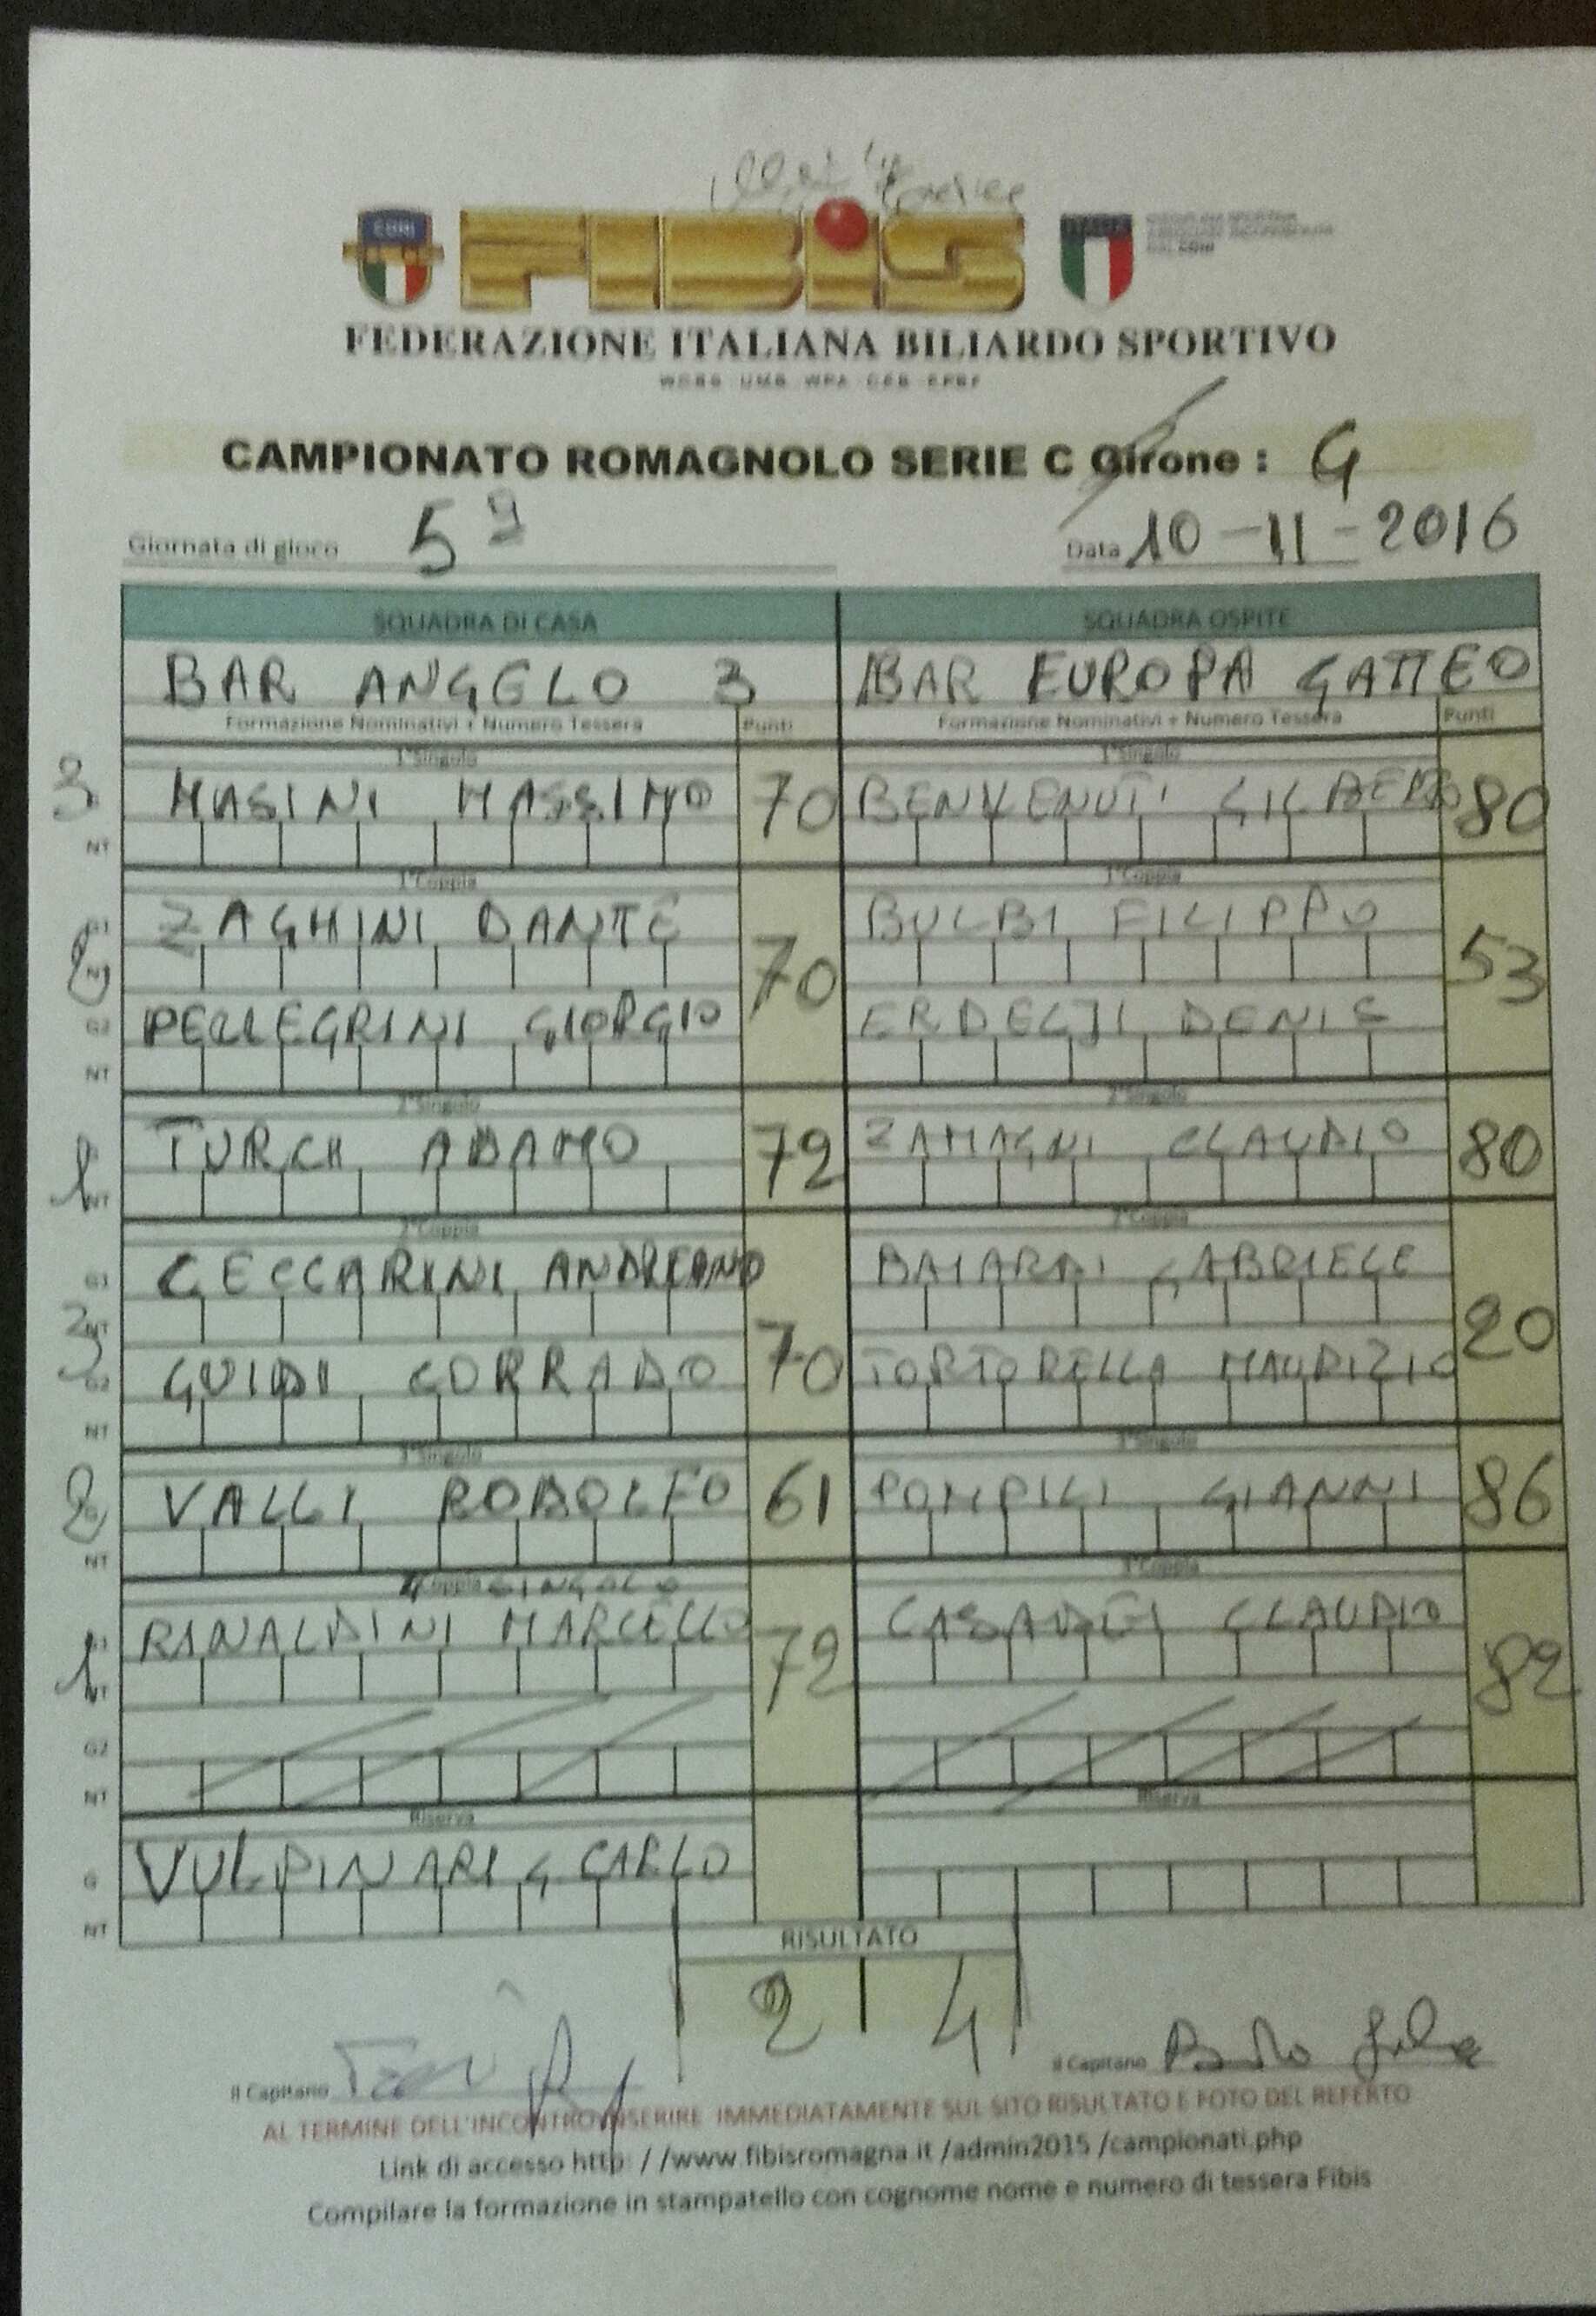 EBRI
FIBiS
FEDERAZIONE ITALIANA BILIARDO SPORTIVO
WCBS - UMB - WPA - CEB - EPBF
CAMPIONATO ROMAGNOLO SERIE C Girone : G
Giornata di gioco 5ª Data 10-11-2016
SQUADRA DI CASA SQUADRA OSPITE
BAR ANGELO 3 BAR EUROPA GATTEO
Formazione Nominativi + Numero Tessera Punti Formazione Nominativi + Numero Tessera Punti
1°Singolo 1°Singolo
3 MASINI MASSIMO 70 BENVENUTI GILBERTO 80
NT
1°Coppia 1°Coppia
G1 ZAGHINI DANTE BULBI FILIPPO
NT 70 53
G2 PELLEGRINI GIORGIO ERDEGJI DENIS
NT
2°Singolo 2°Singolo
1 TURCHI ADAMO 72 ZAMAGNI CLAUDIO 80
NT
2°Coppia 2°Coppia
G1 CECCARINI ANDREANO BAIARDI GABRIELE
NT 70 20
G2 GUIDI CORRADO TORTORELLA MAURIZIO
NT
3°Singolo 3°Singolo
2 VALLI RODOLFO 61 POMPILI GIANNI 86
NT
4 Coppia SINGOLO 3°Coppia
G1 RINALDINI MARCELLO 72 CASADEI CLAUDIO 82
1 NT
G2
NT
Riserva Riserva
G VULPINARI G CARLO
NT
RISULTATO
2 4
il Capitano il Capitano
AL TERMINE DELL'INCONTRO INSERIRE IMMEDIATAMENTE SUL SITO RISULTATO E FOTO DEL REFERTO
Link di accesso http: / /www.fibisromagna.it /admin2015 /campionati.php
Compilare la formazione in stampatello con cognome nome e numero di tessera Fibis